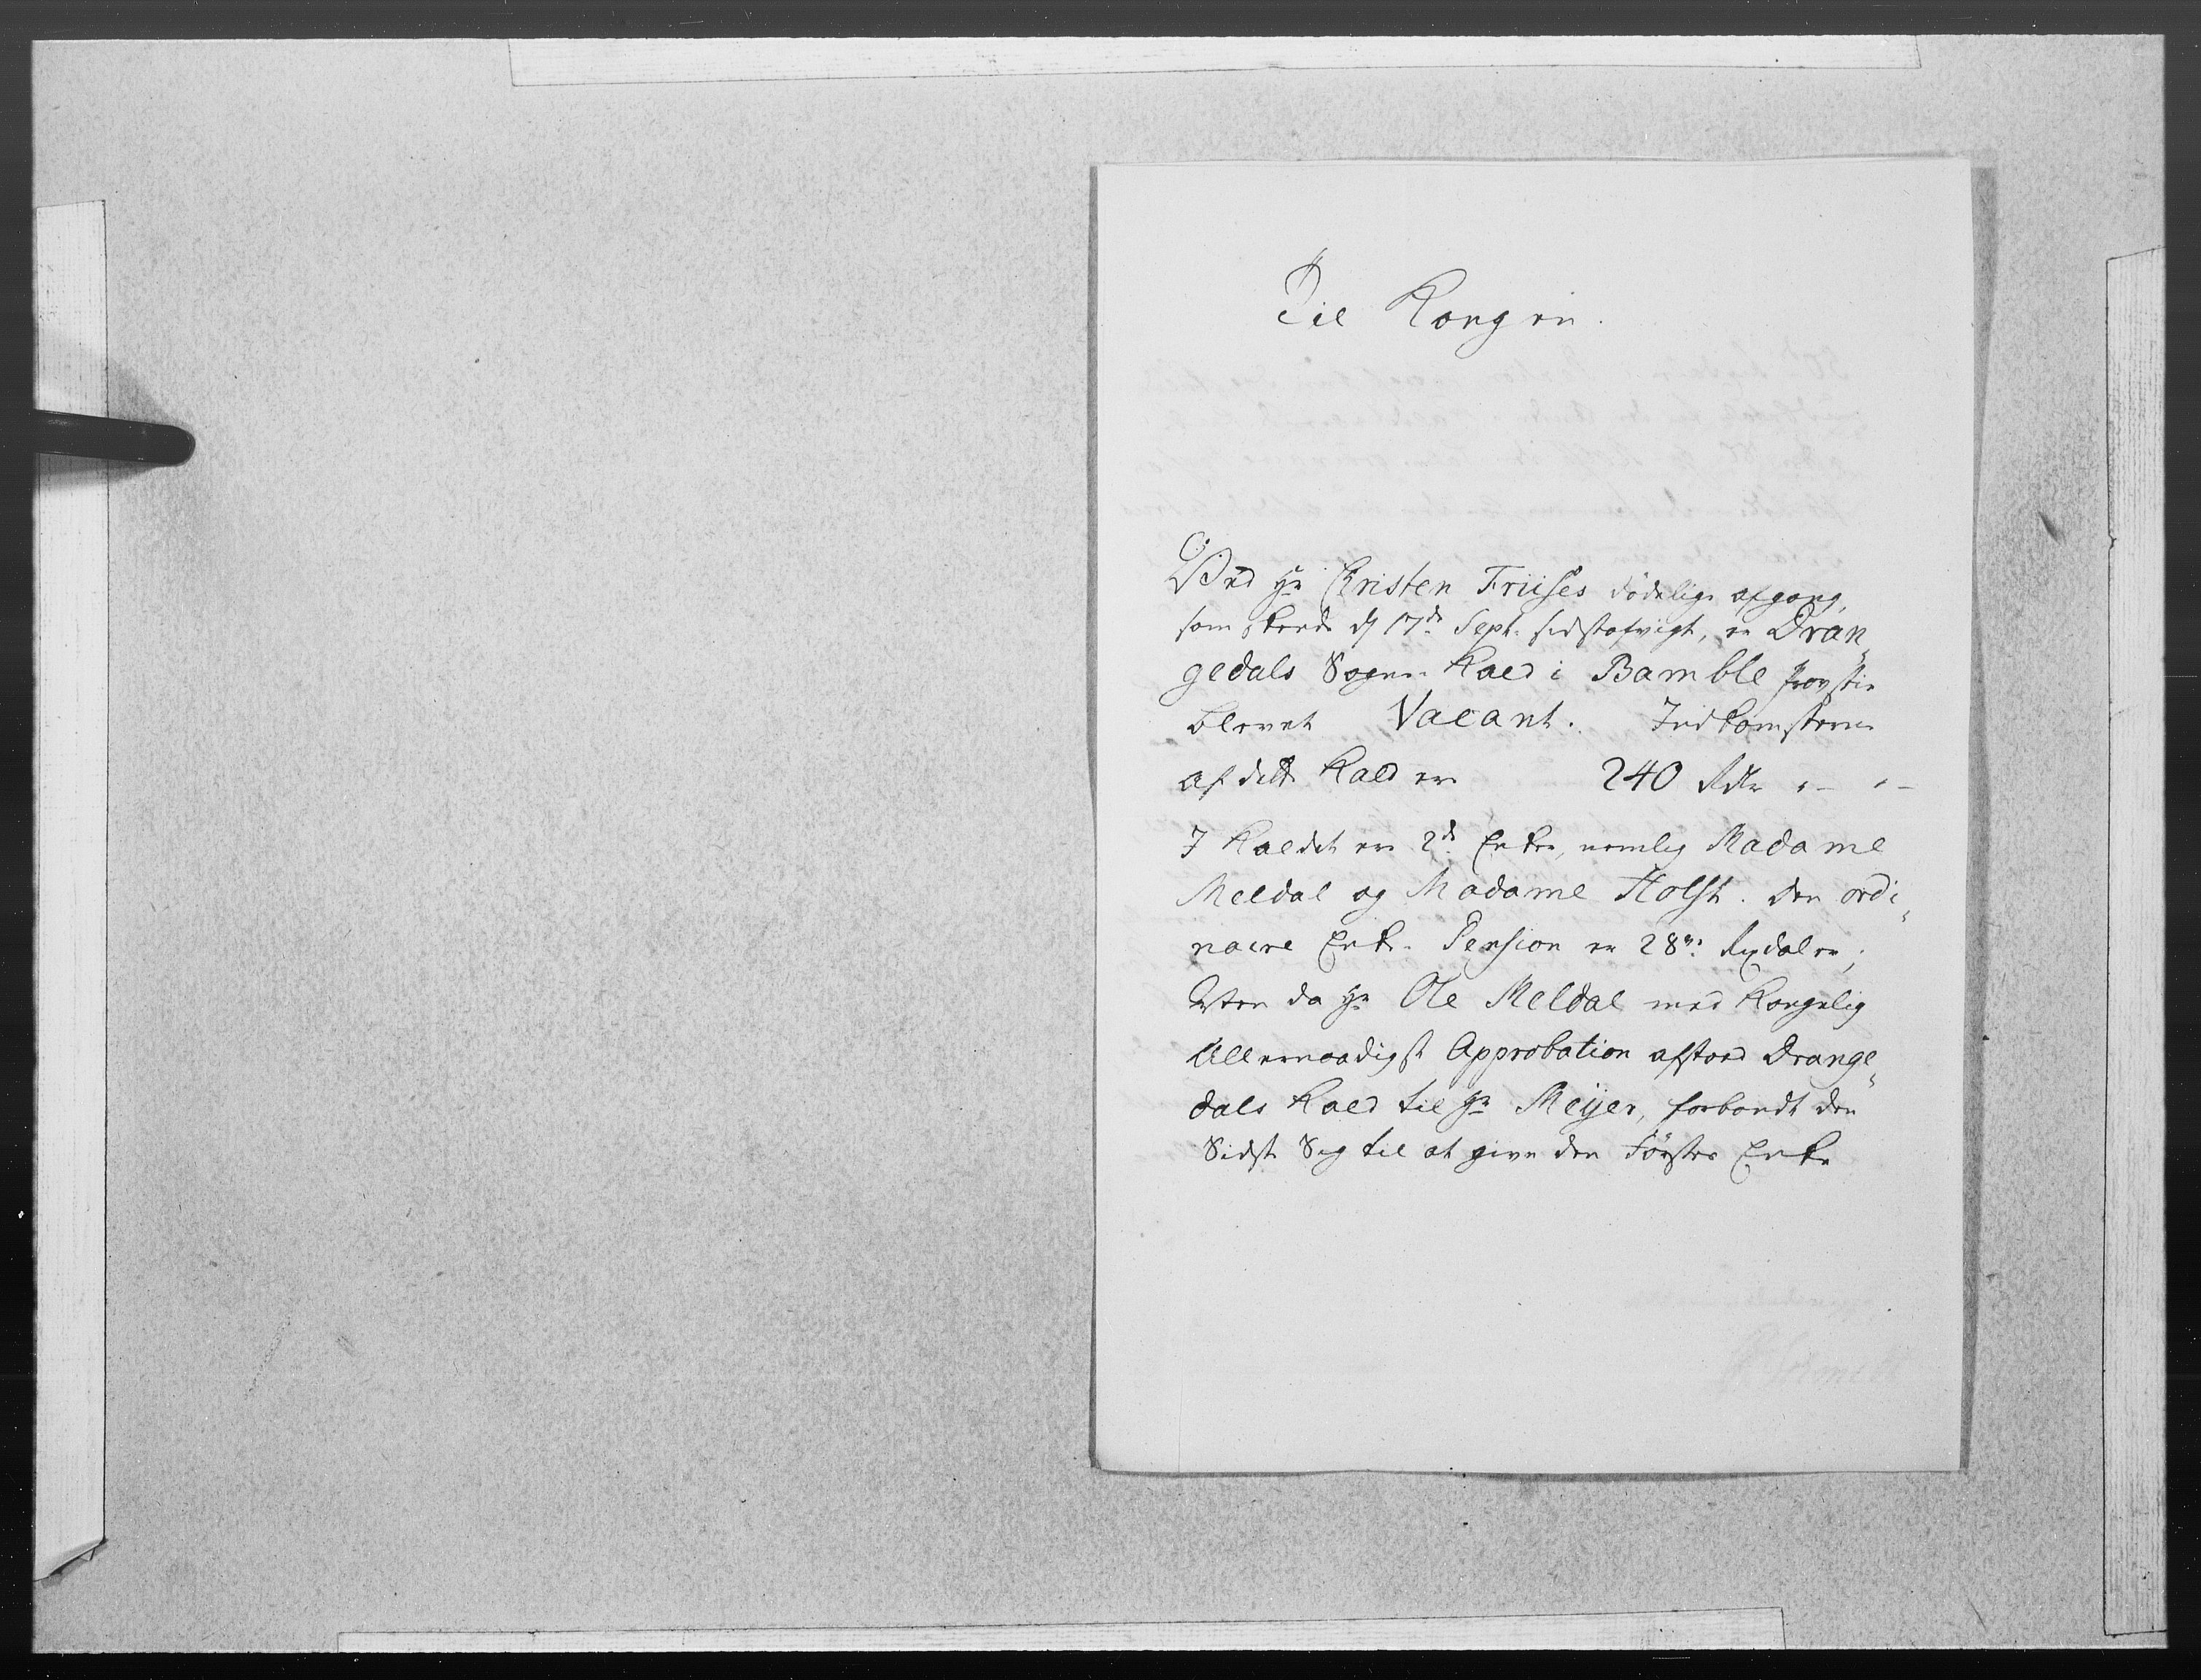 Til Kongen.
Ved Hr Christen Friises dödelige afgang,
som skeede d 17de Sept. sidstafvigt, er Dran„
gedals Sogne Kald i Bamble Provstie
blevet Vacant. Indkomsterne
af dette Kald er 240 Rdlr „– „–
I Kaldet ere 2de Enker, nemlig Madame
Meldal og Madame Holst. Den ordi„
naire Enke-Pension er 28ve Rixdaler;
Men da Hr Ole Meldal med Kongelig
Allernaadigst Approbation afstoed Drange„
dals Kald til Hr Meijer, forbandt den
Sidste Sig til at give den Förstes Enke